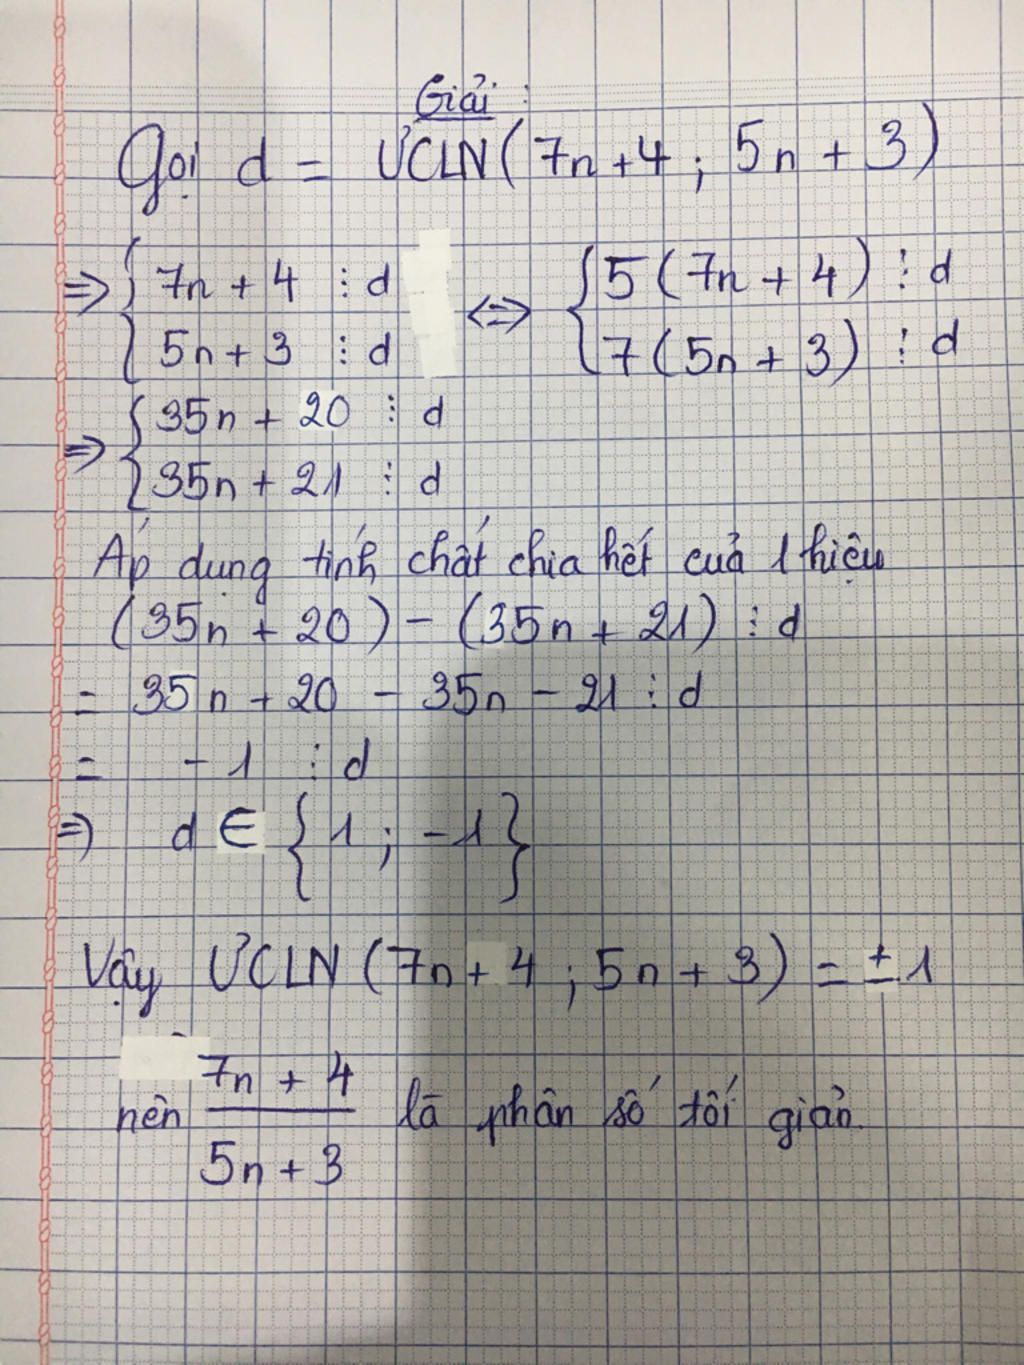 Giải :
Gọi d = ƯCLN(7n+4 ; 5n + 3)
=> { 7n + 4 ⋮ d <=> { 5(7n + 4) ⋮ d
{ 5n + 3 ⋮ d { 7(5n + 3) ⋮ d
=> { 35n + 20 ⋮ d
{ 35n + 21 ⋮ d
Áp dụng tính chất chia hết cuả 1 hiệu
(35n + 20) - (35n + 21) ⋮ d
= 35n + 20 - 35n - 21 ⋮ d
= -1 ⋮ d
=> d ∈ {1 ; -1}
Vậy ƯCLN (7n + 4 ; 5n + 3) = ±1
nên (7n + 4)/(5n + 3) là phân số tối giản.